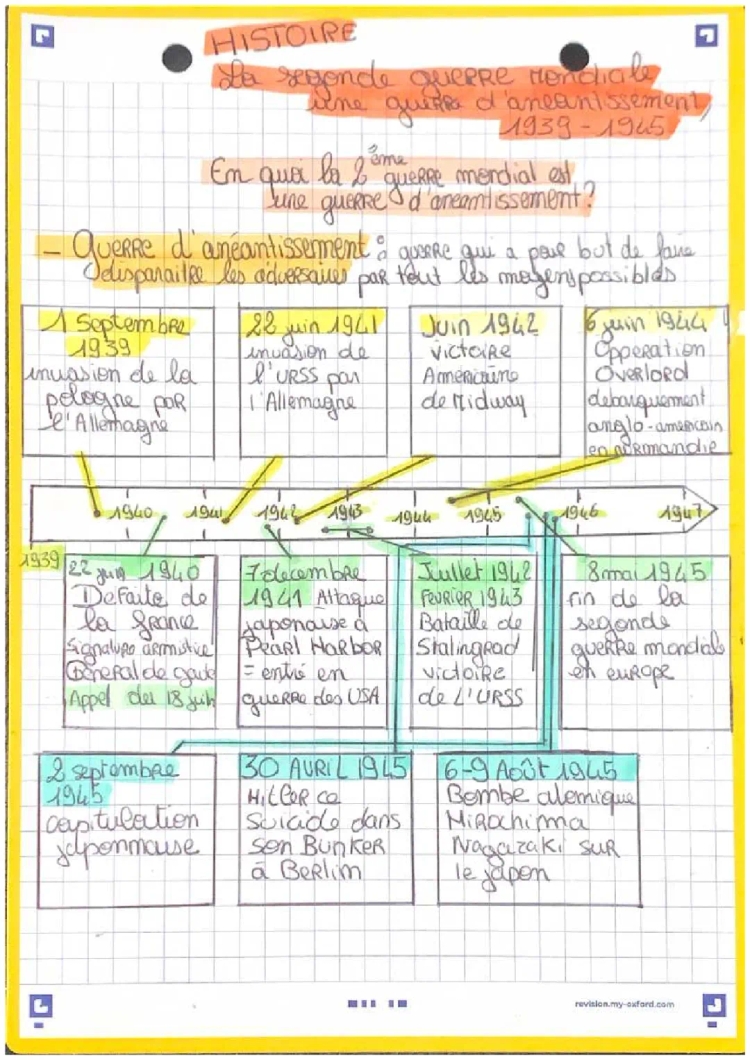 HISTOIRE
La segonde guerre mondiale,
une guerre d'anéantissement,
1939-1945
En quoi la 2ème guerre mondial est
une guerre d'anéantissement?
- Guerre d'anéantissement : guerre qui a pour but de faire
disparaitre les adversaires par tout les moyens possibles
1 Septembre
1939
invasion de la
pologne par
l'Allemagne
22 juin 1941
invasion de
l'URSS par
l'Allemagne
Juin 1942
victoire
Américaine
de Midway
6 juin 1944
Opperation
Overlord
debarquement
anglo-americain
en normandie
1940 1941 1942 1943 1944 1945 1946 1947
1939
22 juin 1940
Defaite de
la france
Signature armistice
General de gaule
Appel du 18 juin
7 decembre
1941 Attaque
japonaise à
Pearl Harbor
= entré en
guerre des USA
Juillet 1942
Fevrier 1943
Bataille de
Stalingrad
victoire
de L'URSS
8 mai 1945
fin de la
segonde
guerre mondiale
en europe
2 septembre
1945
capitulation
japonnaise
30 AVRIL 1945
Hitler ce
Suicide dans
son Bunker
à Berlim
6-9 Août 1945
Bombe atomique
Hirochima
Nagazaki sur
le japon
revision.my-oxford.com